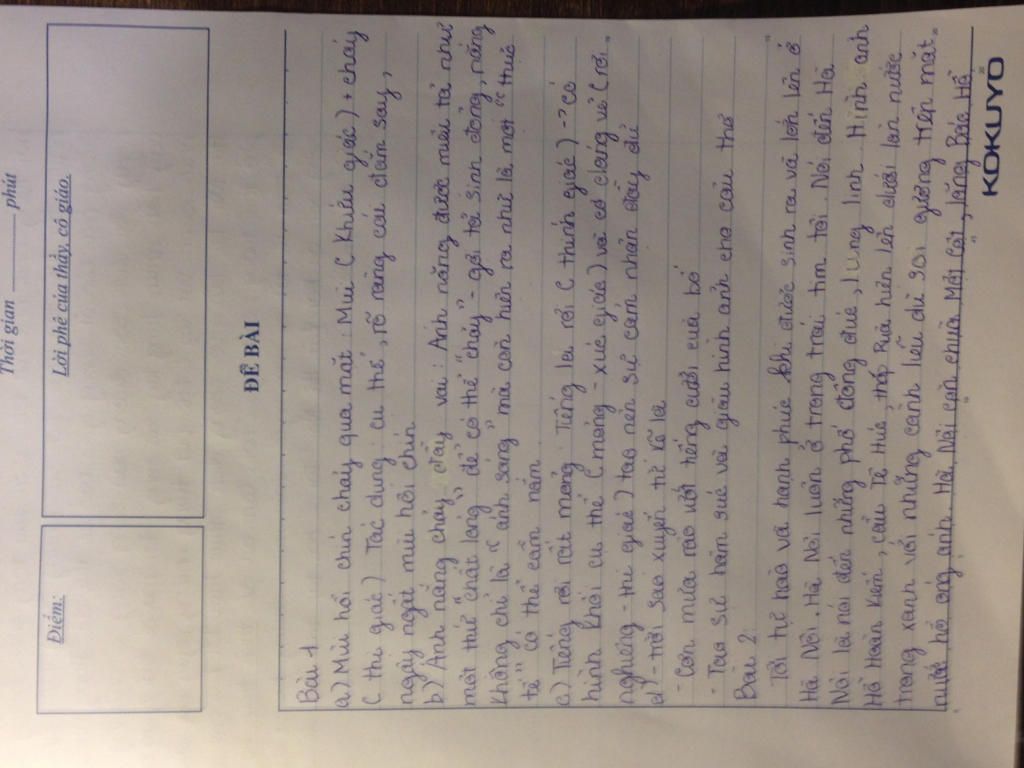 Thời gian ______ phút
Điểm:
Lời phê của thầy, cô giáo.
ĐỀ BÀI
Bài 1
a) Mùi hồi chín chảy qua mặt: Mùi (khứu giác) + chảy
(thị giác) Tác dụng: cụ thể, rõ ràng cái đắm say,
ngây ngất mùi hồi chín
b) Ánh nắng chảy đầy vai: Ánh nắng được miêu tả như
một thứ "chất lỏng" để có thể "chảy" - gợi tả sinh động, nắng
không chỉ là "ánh sáng" mà còn hiện ra như là một "thực
tế" có thể cầm nắm
c) Tiếng rơi rất mỏng: Tiếng lá rơi (thính giác) -> có
hình khối cụ thể (mỏng - xúc giác) và có dáng vẻ (rơi
nghiêng - thị giác) tạo nên sự cảm nhận đầy đủ
d) - Trời sao xuyến từ kẽ lá
- Cơn mưa rào ướt tiếng cười của bố
- Tạo sự hàm súc và giàu hình ảnh cho câu thơ
Bài 2:
"Tôi tự hào và hạnh phúc khi được sinh ra và lớn lên ở
Hà Nội. Hà Nội luôn ở trong trái tim tôi. Nói đến Hà
Nội là nói đến những phố đông đúc, lung linh. Hình ảnh
Hồ Hoàn Kiếm, cầu Thê Húc, tháp Rùa hiện lên dưới làn nước
trong xanh với những cành liễu rủ soi gương trên mặt
nước hồ óng ánh. Hà Nội còn chùa Một Cột, lăng Bác Hồ
KOKUYO